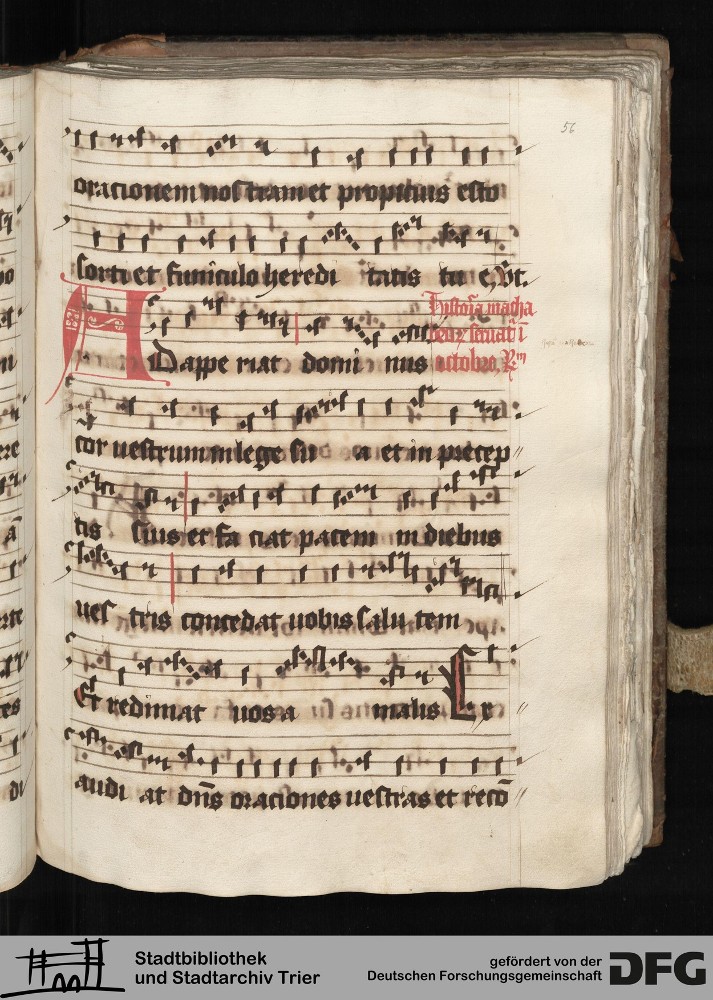 56
orationem nostram et propitius esto
sorti et funiculo heredi tatis tu e, Vt.
historia macha
beorum servatur in
octobro. Rm
ADappe riat domi nus
cor vestrum in lege su a et in precep
tis suis et fa ciat pacem in diebus
ves tris concedat vobis salu tem
Et redimat vos a malis Er
audi at dns orationes vestras et reco
Stadtbibliothek
und Stadtarchiv Trier
gefördert von der
Deutschen Forschungsgemeinschaft
DFG